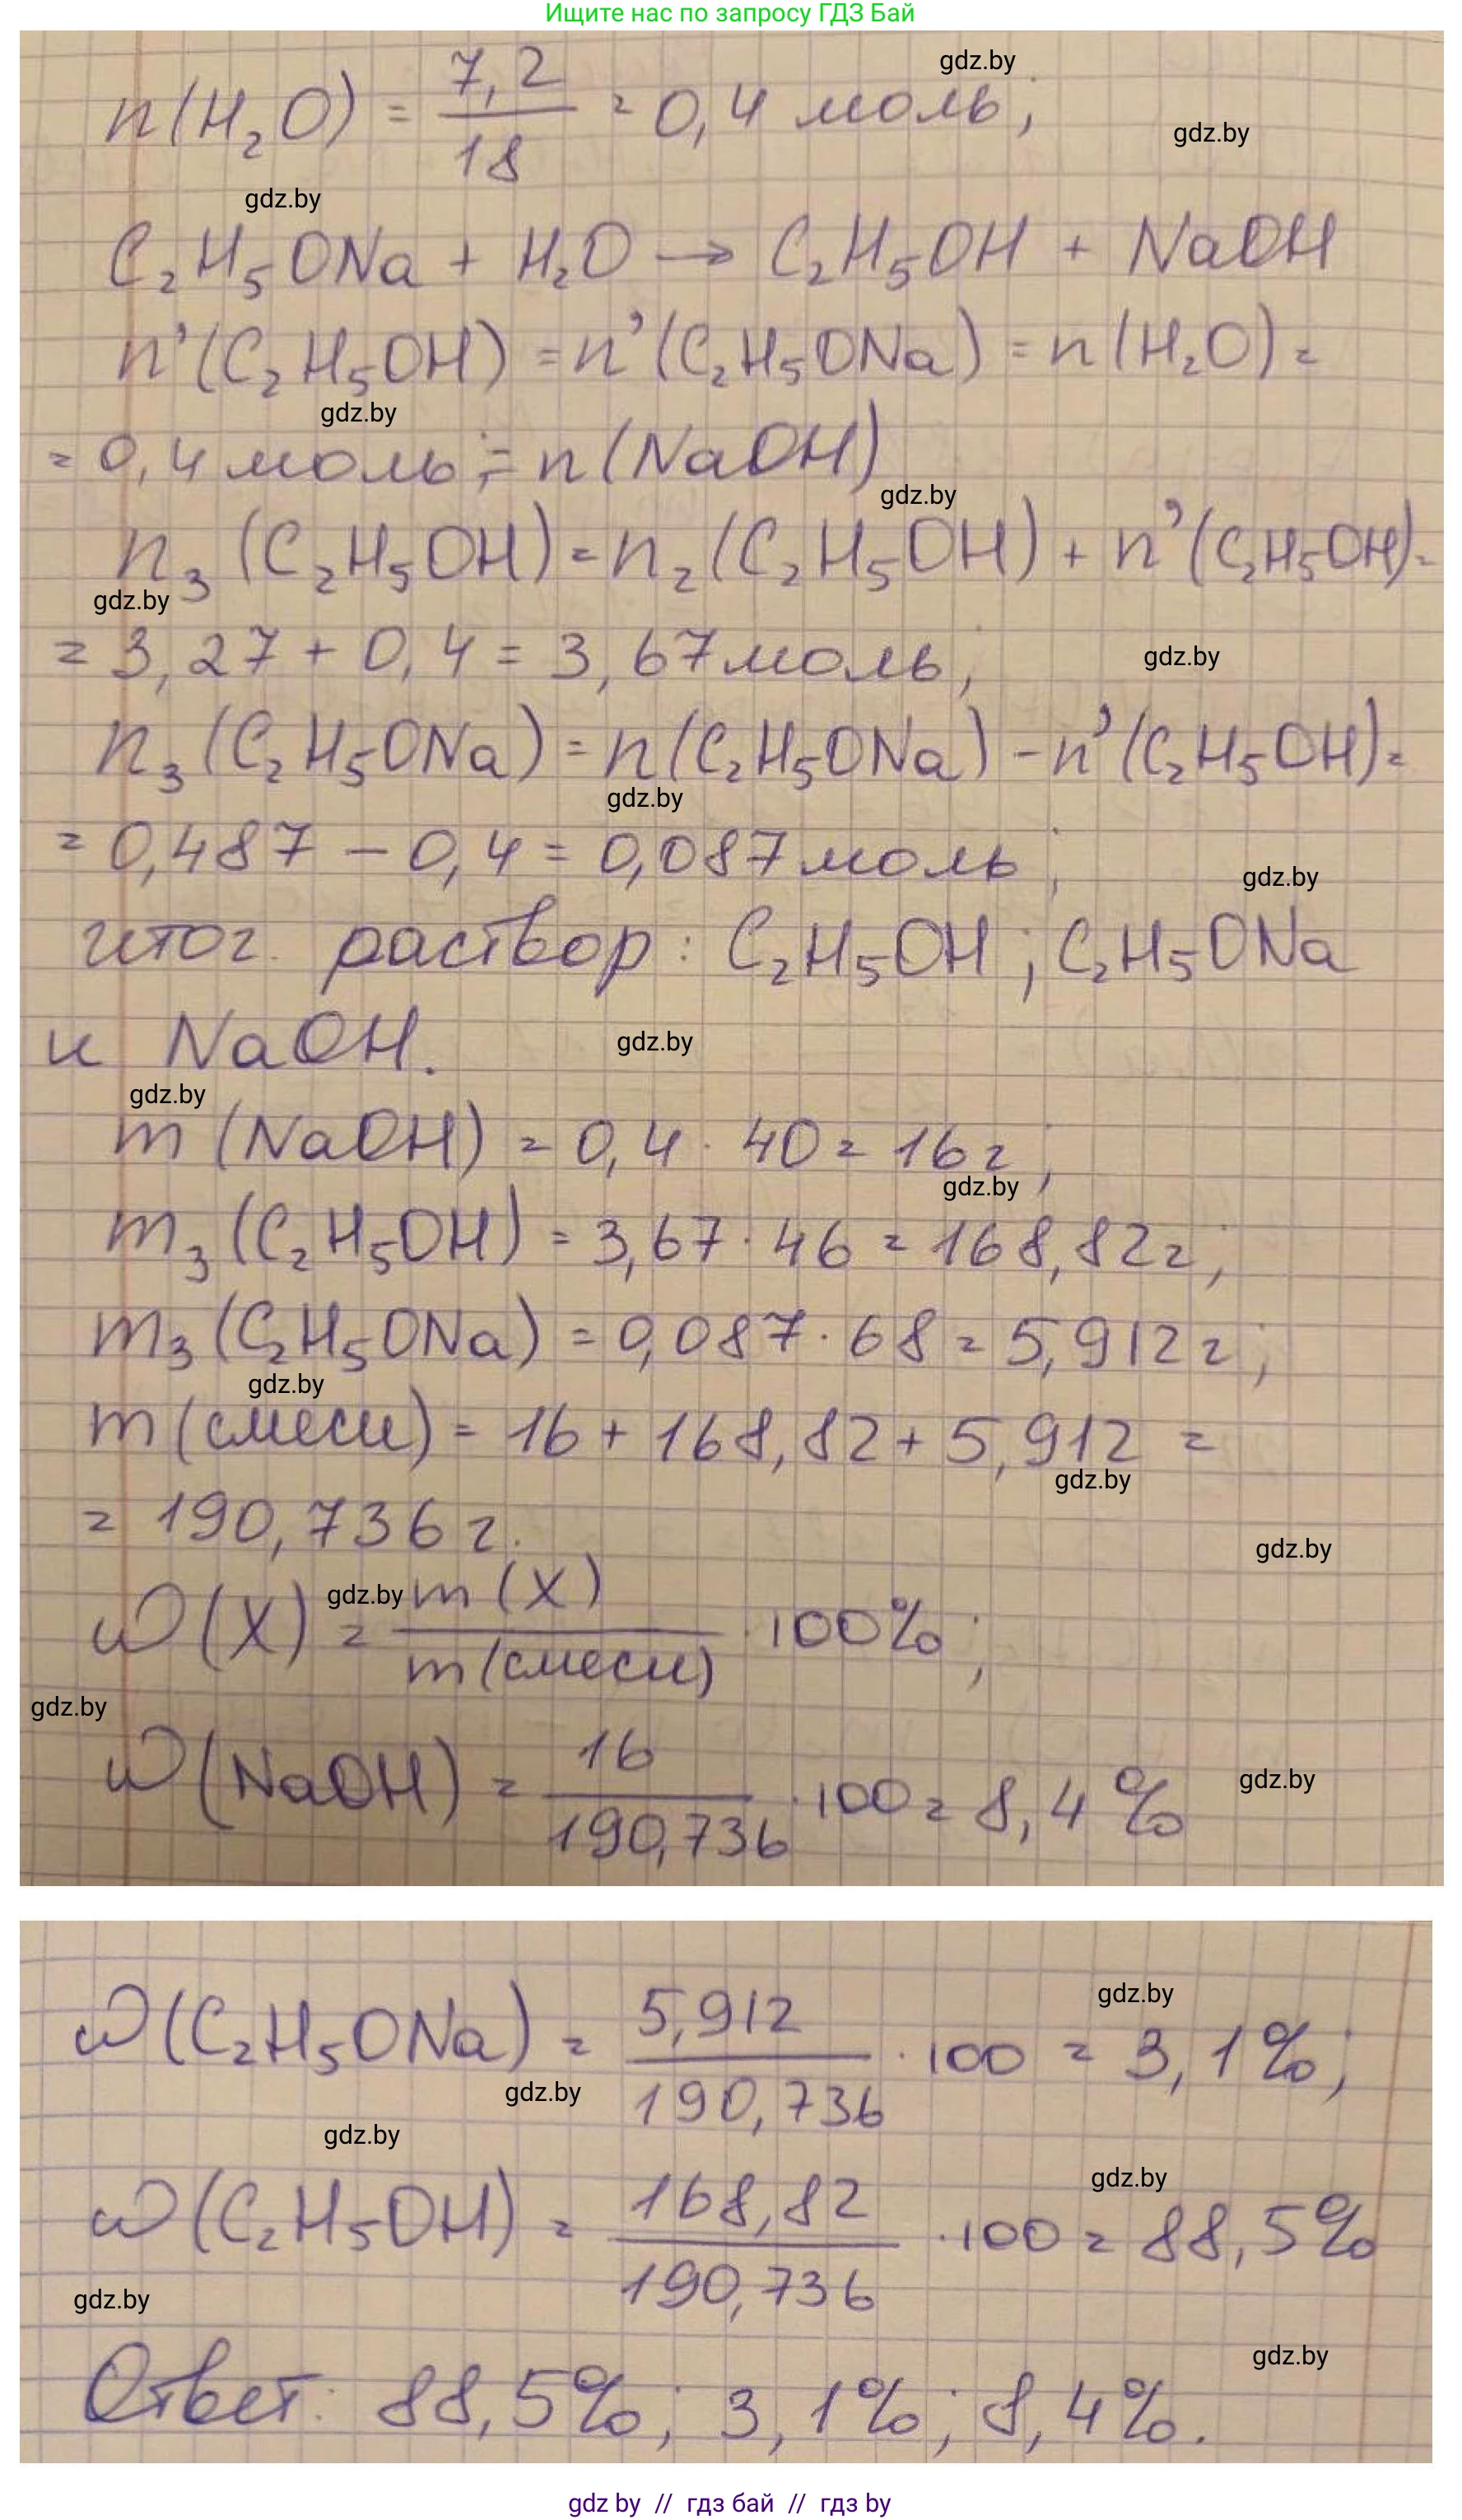 Ищите нас по запросу ГДЗ Бай
gdz.by
n(H₂O) = 7,2/18 = 0,4 моль;
gdz.by
gdz.by
C₂H₅ONa + H₂O → C₂H₅OH + NaOH
n'(C₂H₅OH) = n'(C₂H₅ONa) = n(H₂O) =
gdz.by
= 0,4 моль; = n(NaOH)
gdz.by
n₃(C₂H₅OH) = n₂(C₂H₅OH) + n'(C₂H₅OH) =
gdz.by
= 3,27 + 0,4 = 3,67 моль;
gdz.by
n₃(C₂H₅ONa) = n(C₂H₅ONa) - n'(C₂H₅OH) =
gdz.by
= 0,487 - 0,4 = 0,087 моль;
gdz.by
итог. раствор: C₂H₅OH; C₂H₅ONa
и NaOH.
gdz.by
gdz.by
m(NaOH) = 0,4 · 40 = 16 г;
gdz.by
m₃(C₂H₅OH) = 3,67 · 46 = 168,82 г;
m₃(C₂H₅ONa) = 0,087 · 68 = 5,912 г;
gdz.by
m(смеси) = 16 + 168,82 + 5,912 =
gdz.by
= 190,736 г.
gdz.by
gdz.by
ω(X) = m(X)/m(смеси) · 100%;
gdz.by
ω(NaOH) = 16/190,736 · 100 = 8,4%
gdz.by
gdz.by
ω(C₂H₅ONa) = 5,912/190,736 · 100 = 3,1%;
gdz.by
gdz.by
gdz.by
ω(C₂H₅OH) = 168,82/190,736 · 100 = 88,5%
gdz.by
gdz.by
Ответ: 88,5%; 3,1%; 8,4%.
gdz by // гдз бай // гдз by